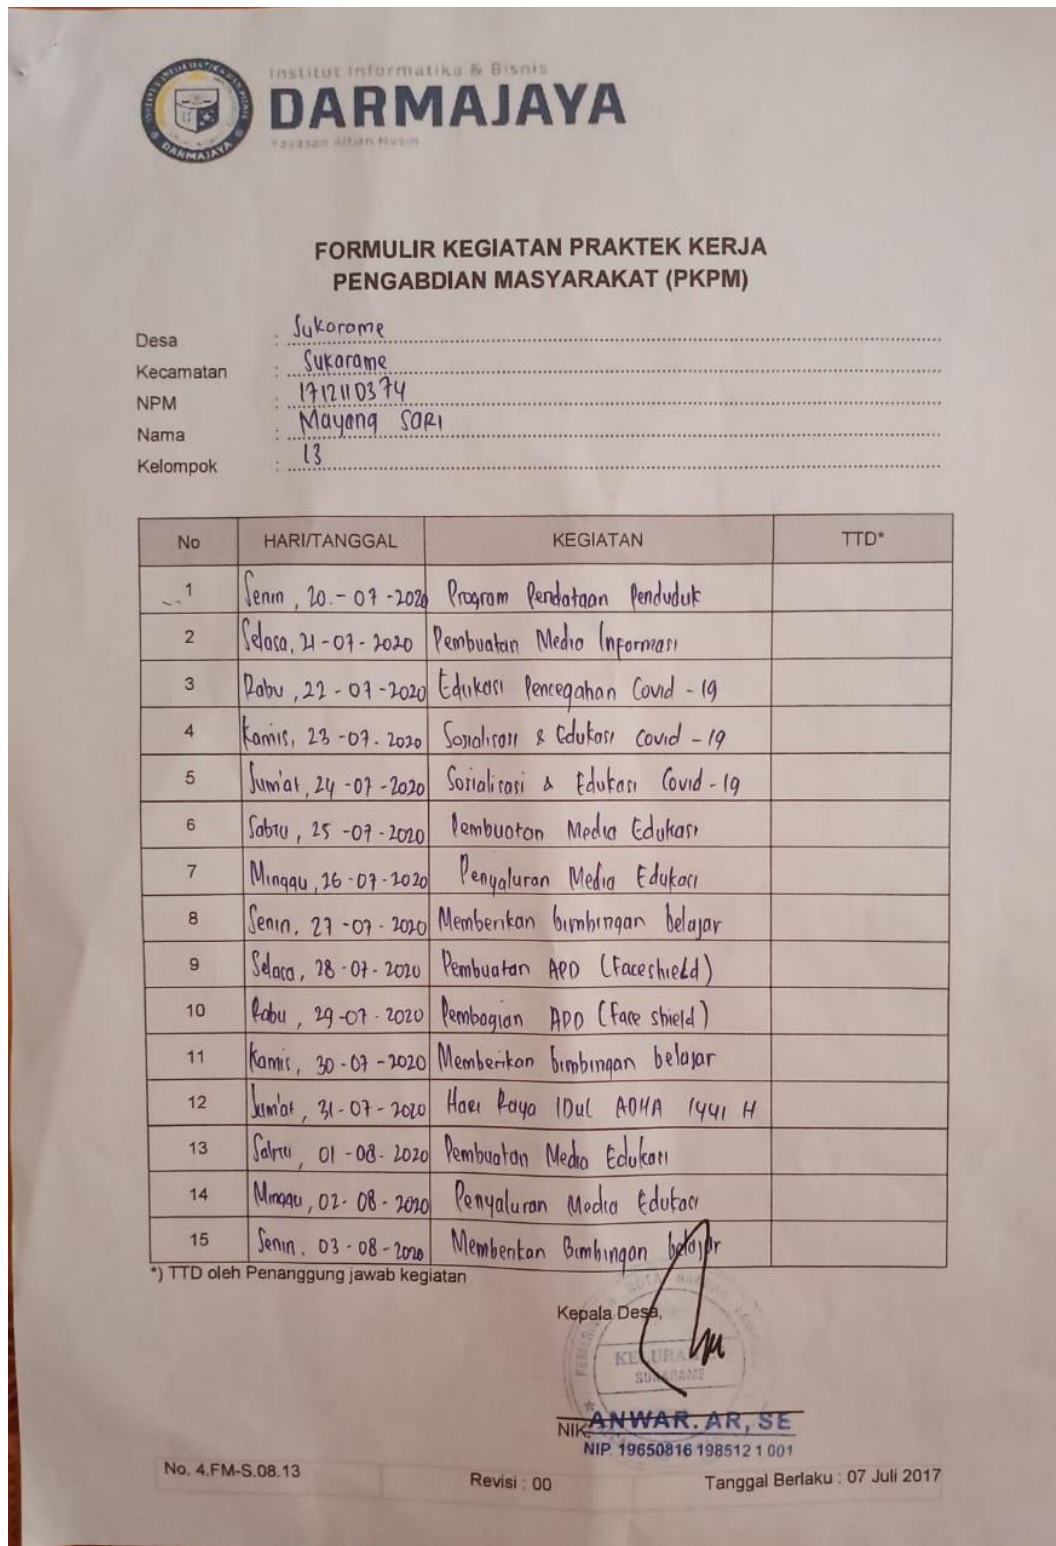 Institut Informatika & Bisnis
DARMAJAYA
Yayasan Alfian Husin
DARMAJAYA
FORMULIR KEGIATAN PRAKTEK KERJA
PENGABDIAN MASYARAKAT (PKPM)
Desa : Sukarame
Kecamatan : Sukarame
NPM : 1712110374
Nama : Mayang SARI
Kelompok : 13
No HARI/TANGGAL KEGIATAN TTD*
1 Senin, 20.-07-2020 Program Pendataan Penduduk
2 Selasa, 21-07-2020 Pembuatan Media Informasi
3 Rabu, 22-07-2020 Edukasi Pencegahan Covid-19
4 Kamis, 23-07-2020 Sosialisasi & Edukasi Covid-19
5 Jum'at, 24-07-2020 Sosialisasi & Edukasi Covid-19
6 Sabtu, 25-07-2020 Pembuatan Media Edukasi
7 Minggu, 26-07-2020 Penyaluran Media Edukasi
8 Senin, 27-07-2020 Memberikan bimbingan belajar
9 Selasa, 28-07-2020 Pembuatan APD (Faceshield)
10 Rabu, 29-07-2020 Pembagian APD (Face shield)
11 Kamis, 30-07-2020 Memberikan bimbingan belajar
12 Jum'at, 31-07-2020 Hari Raya IDul ADHA 1441 H
13 Sabtu, 01-08-2020 Pembuatan Media Edukasi
14 Minggu, 02-08-2020 Penyaluran Media Edukasi
15 Senin. 03-08-2020 Memberikan Bimbingan belajar
*) TTD oleh Penanggung jawab kegiatan
Kepala Desa,
SUKARAME
NIK. ANWAR. AR, SE
NIP. 19650816 198512 1 001
No. 4.FM-S.08.13 Revisi : 00 Tanggal Berlaku : 07 Juli 2017